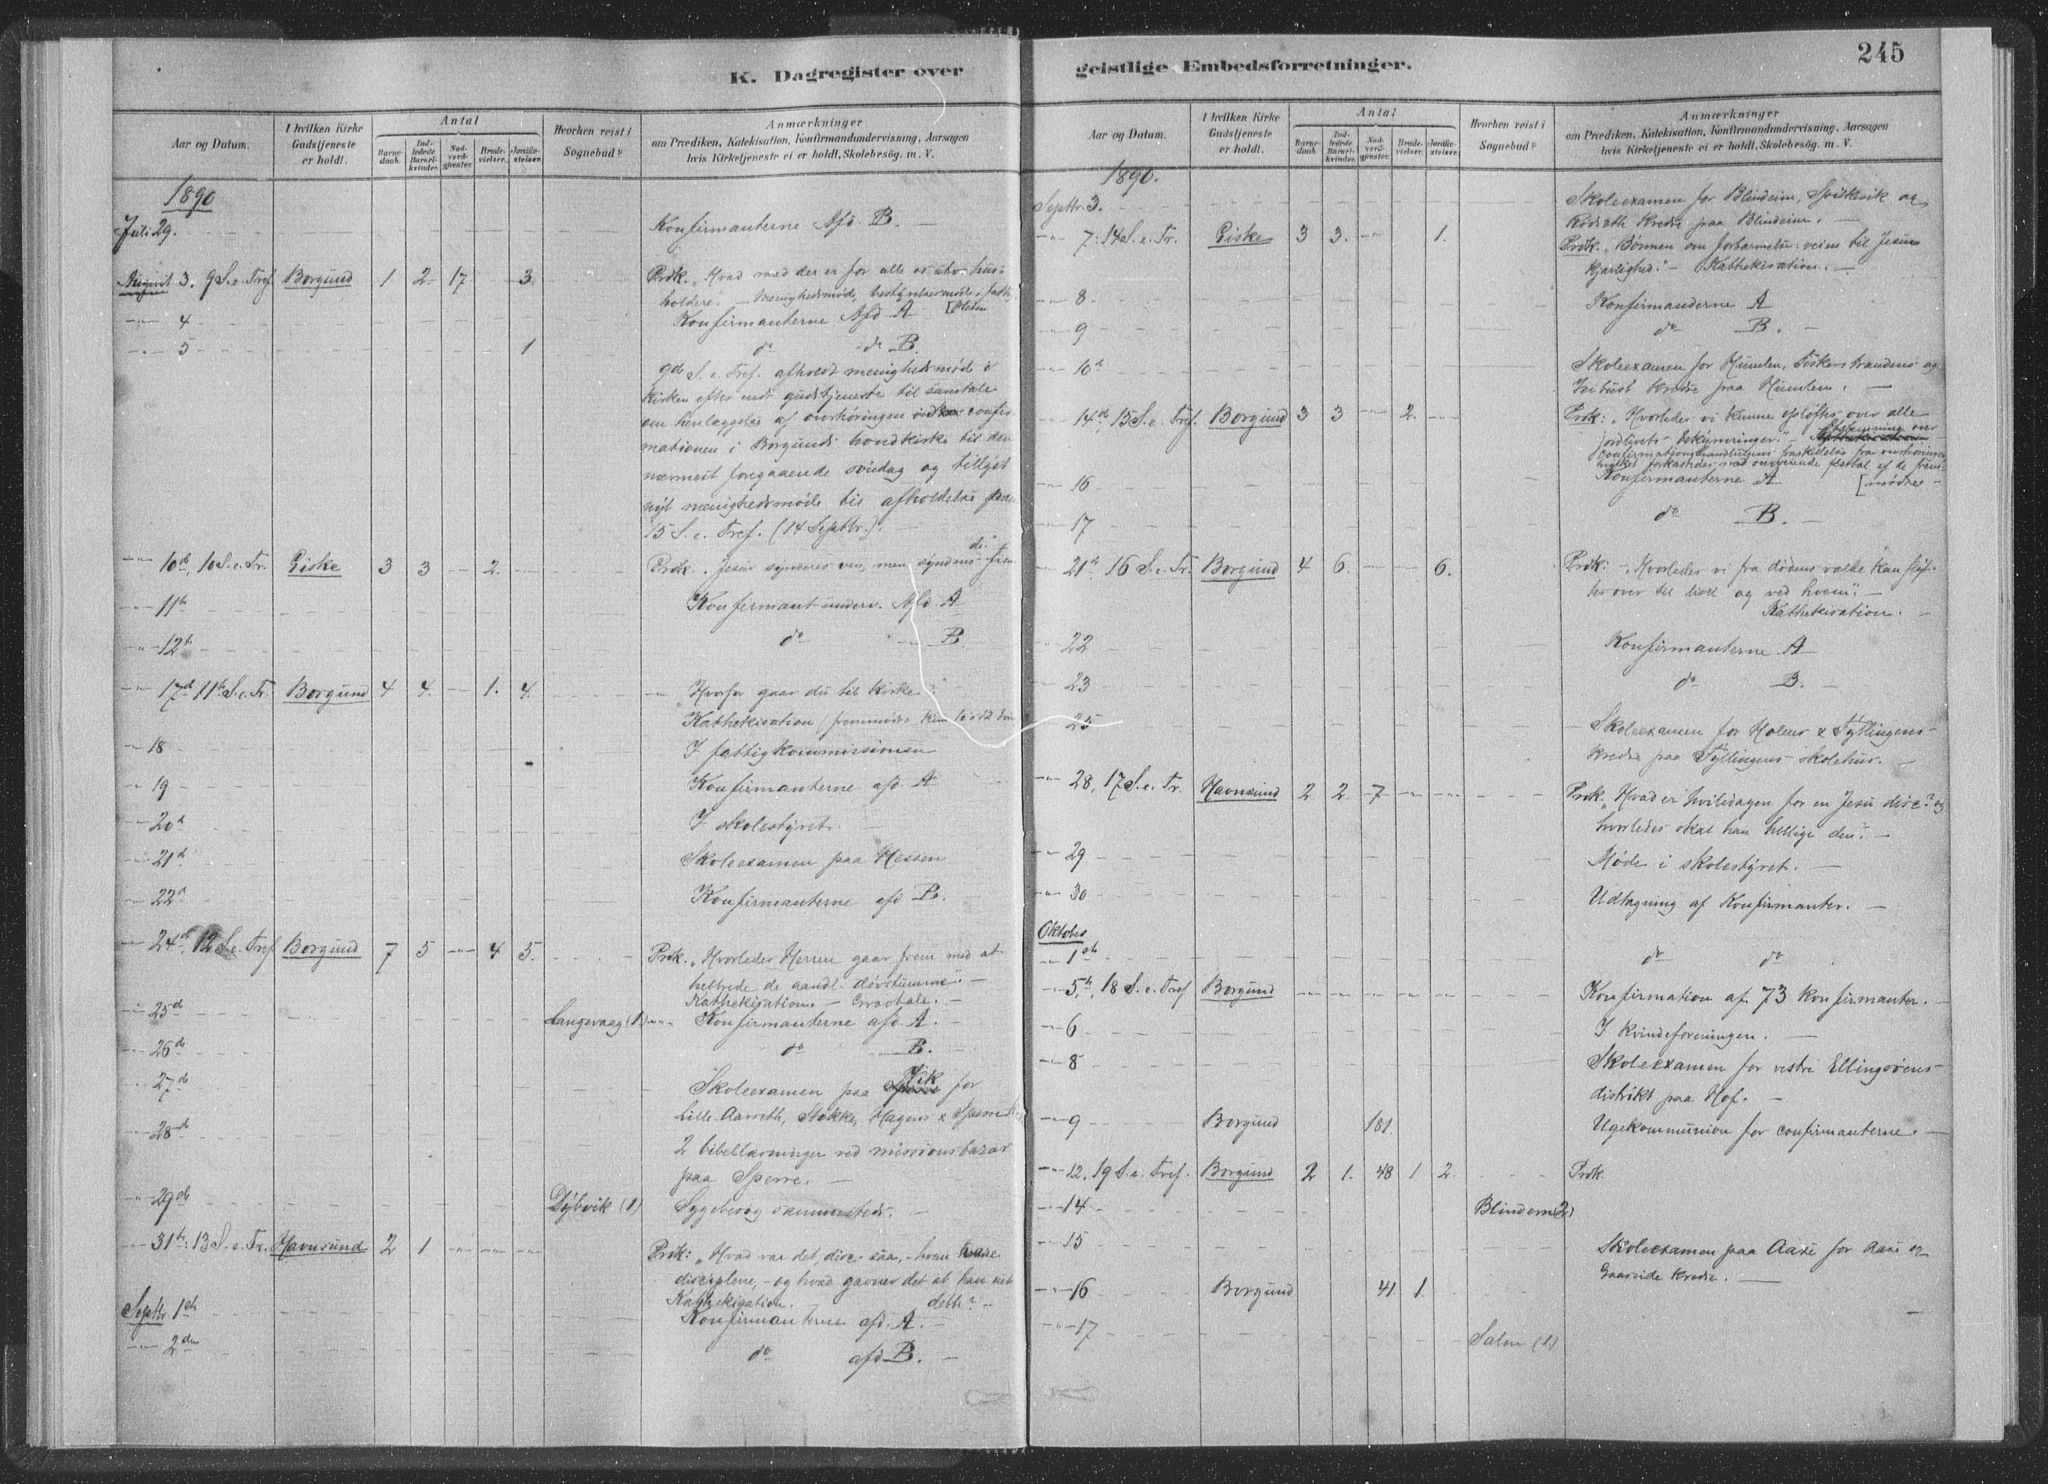 K. Dagregister over
Aar og Datum.
I hvilken Kirke Gudstjeneste er holdt.
Antal
Barnedaab.
Indledede Barselkvinder.
Nadverdgjæster.
Brudevielser.
Jordfæstelser.
Hvorhen reist i Sognebud?
Anmærkninger
om Prædiken, Katekisation, Konfirmandundervisning, Aarsagen
hvis Kirketjeneste ei er holdt, Skolebesøg. m. V.
1890
Juli 29. Konfirmanterne Afd B. —
August 3. 9 S. e. Tref. Borgund 1 2 17 3. Prdk. „Hvad
holdere. — Menighedsmøde,
4 Konfirmanterne Afd A
5 1 do do B.
9de S. e. Tref. afholdt menighedsmøde i
kirken efter endt gudstjeneste til samtale
om henlæggelse af overhøringen confir-
mationen i Borgunds hovedkirke til den
nærmest foregaaende søndag og tillyst
nyt menighedsmøde til afholdelse
15 S. e. Tref. (14 Septbr.). —
10de, 10 S. e. Tr. Giske 3 3 2. Prdk. „Jesus synderes ven, men syndens
11te Konfirmantunderv. Afd A
12te do B.
17de 11te S. e. Tr. Borgund 4 4. 1. 4. „Hvorfor gaar du til kirke?
Kathekisation
18 I fattigkommissionen
19 Konfirmanterne afd. A
20de I skolestyret.
21de Skoleexamen paa Hessen
22de Konfirmanterne afd B.
24de, 12 S. e. Tref Borgund 7 5 4 5. Prdk. „Hvorledes Herren gaar frem med at
helbrede de aandl. døvstumme". —
Kathekisation. — Gravtale. —
25de Langevaag (1) Konfirmanterne afd. A. —
26de do B. —
27de Skoleexamen paa Vik for
Lille-Aarseth, Stokke, Hagens &
28de 2 bibellæsninger ved missionsbazar
paa Sperre. —
29de Dybvik (1) Sygebesøg sammesteds. —
31te: 13 S. e. Tr. Havnsund 2 1 Prdk: „Hvad var det, disc. saa, — hvem
disciplene, — og hvad gavner det at han
Kathekisation. dette? —
Septbr 1ste Konfirmanterne afd. A. —
2den do afd. B. —
geistlige Embedsforretninger.
245
Aar og Datum.
I hvilken Kirke Gudstjeneste er holdt.
Antal
Barnedaab.
Indledede Barselkvinder.
Nadverdgjæster.
Brudevielser.
Jordfæstelser.
Hvorhen reist i Sognebud?
Anmærkninger
om Prædiken, Katekisation, Konfirmandundervisning, Aarsagen
hvis Kirketjeneste ei er holdt, Skolebesøg. m. V.
1890.
Septbr. 3. Skoleexamen for Blindeim, Spilkevik og
kreds paa Blindeim. —
7: 14 S. e. Tr. Giske 3 3. 1. Prdk. „Bønnen om forbarmelse: veien til Jesu
kjærlighed". — Kathekisation. —
8 Konfirmanderne A
9 do B. —
10de Skoleexamen for Humlen, og
kreds paa Humlen. —
14de, 15 S. e. Tref. Borgund 3 3 2. Prdk: „Hvorledes vi kunne opløftes over alle
jordlivets bekymringer. — Afstemning over
confirmationshandlingens fraskillelse fra overhøringen,
forkastedes med overveiende flertal af de frem-
[mødte —
16 Konfirmanterne A
17 do B. —
21de, 16 S. e. Tr. Borgund 4 6. 6. Prdk: — Hvorledes vi fra dødens vælde kan flyt-
tes over til livet og ved hvem". —
Kathekisation. —
22 Konfirmanterne A
23 do B. —
25 Skoleexamen for Holens & Fyllingens
kredse paa Fyllingens skolehus. —
28, 17 S. e. Tr. Havnsund 2 2. 7 Prdk. „Hvad er hviledagen for en Jesu disc? og
hvorledes skal han hellige den". —
29 Møde i skolestyret. —
30 Udtagning af Konfirmanter. —
Oktober
1ste do do
5te, 18 S. e. Tref Borgund Konfirmation af 73 konfirmanter. —
6 I kvindeforeningen. —
8 Skoleexamen for vestre Ellingsøens-
distrikt paa Hof. —
9 Borgund 181. Ugekommunion for confirmanterne. —
12. 19 S. e. Tref. Borgund 2 1. 48 1 2. Prdk.
14 Blindeim (2)
15 Skoleexamen paa Aase for Aase og
Gaaseide kreds. —
16 Borgund 41. 1.
17 (1)